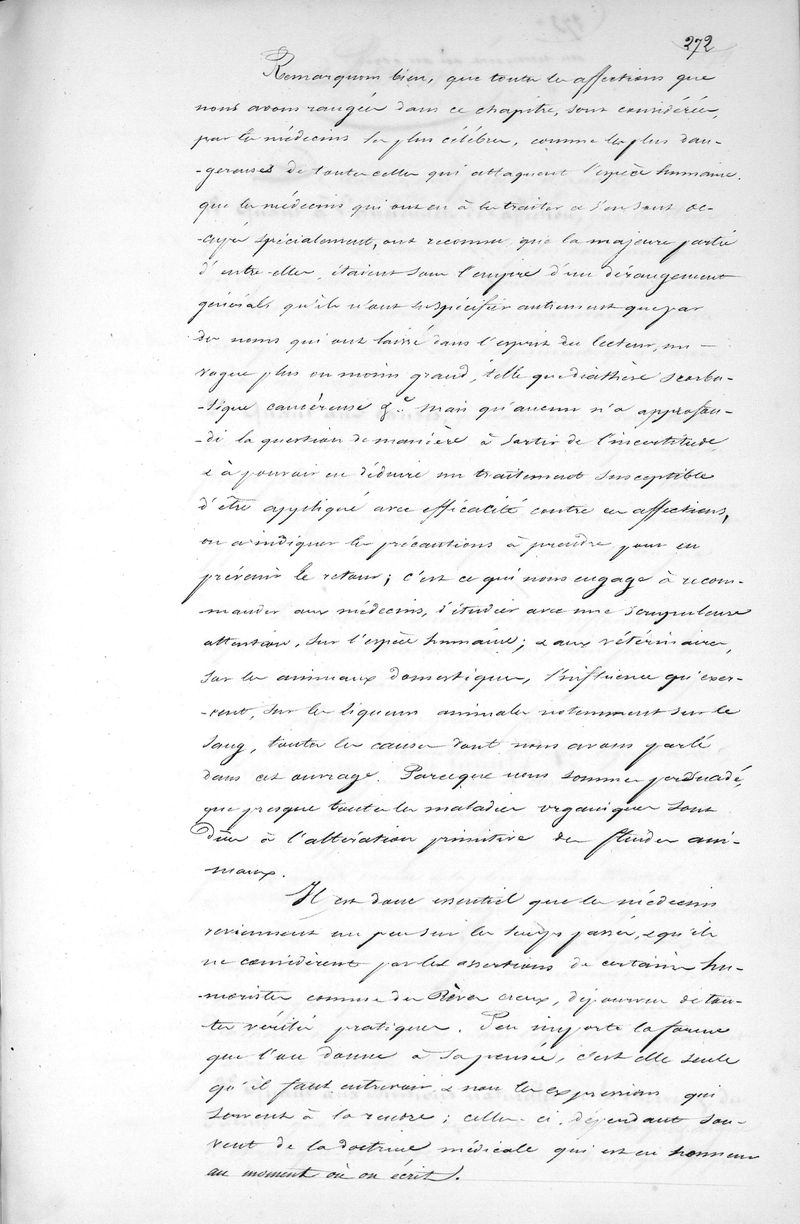 272
Remarquons bien, que toutes les affections que
nous avons rangées dans ce chapitre, sont considérées,
par les médecins les plus célèbres, comme les plus dan-
-gereuses de toutes celles qui attaquent l'espèce humaine.
que les médecins qui ont eu à les traiter et s'en sont oc-
-cupés spécialement, ont reconnu que la majeure partie
d'entre-elles, étaient sous l'empire d'un dérangement
général qu'ils n'ont su spécifier autrement que par
des noms qui ont laissé dans l'esprit du lecteur, un
vague plus ou moins grand, telle que diathèse scorbu-
-tique cancéreuse &.ª mais qu'aucun n'a approfon-
-di la question de manière à sortir de l'incertitude
et à pouvoir en déduire un traitement susceptible
d'être appliqué avec efficacité contre ces affections,
ou à indiquer les précautions à prendre pour en
prévenir le retour; c'est ce qui nous engage à recom-
-mander aux médecins, d'étudier avec une scrupuleuse
attention, sur l'espèce humaine; & aux vétérinaires,
sur les animaux domestiques, l'influence qu'exer-
-cent, sur les liqueurs animales notamment sur le
sang, toutes les causes dont nous avons parlé
dans cet ouvrage. Parceque nous sommes persuadés,
que presque toutes les maladies organiques sont
dües à l'altération primitive des fluides ani-
-maux.
Il est donc essentiel que les médecins
reviennent un peu sur les temps passés, & qu'ils
ne considèrent pas les assertions de certains hu-
-moristes comme des Rèves creux, dépourvus de tou-
-tes vérités pratiques. Peu importe la forme
que l'on donne à sa pensée, c'est elle seule
qu'il faut entrevoir, & non les expressions qui
servent à la rendre; celles-ci, dépendant sou-
-vent de la doctrine médicale qui est en honneur
au moment où on écrit.